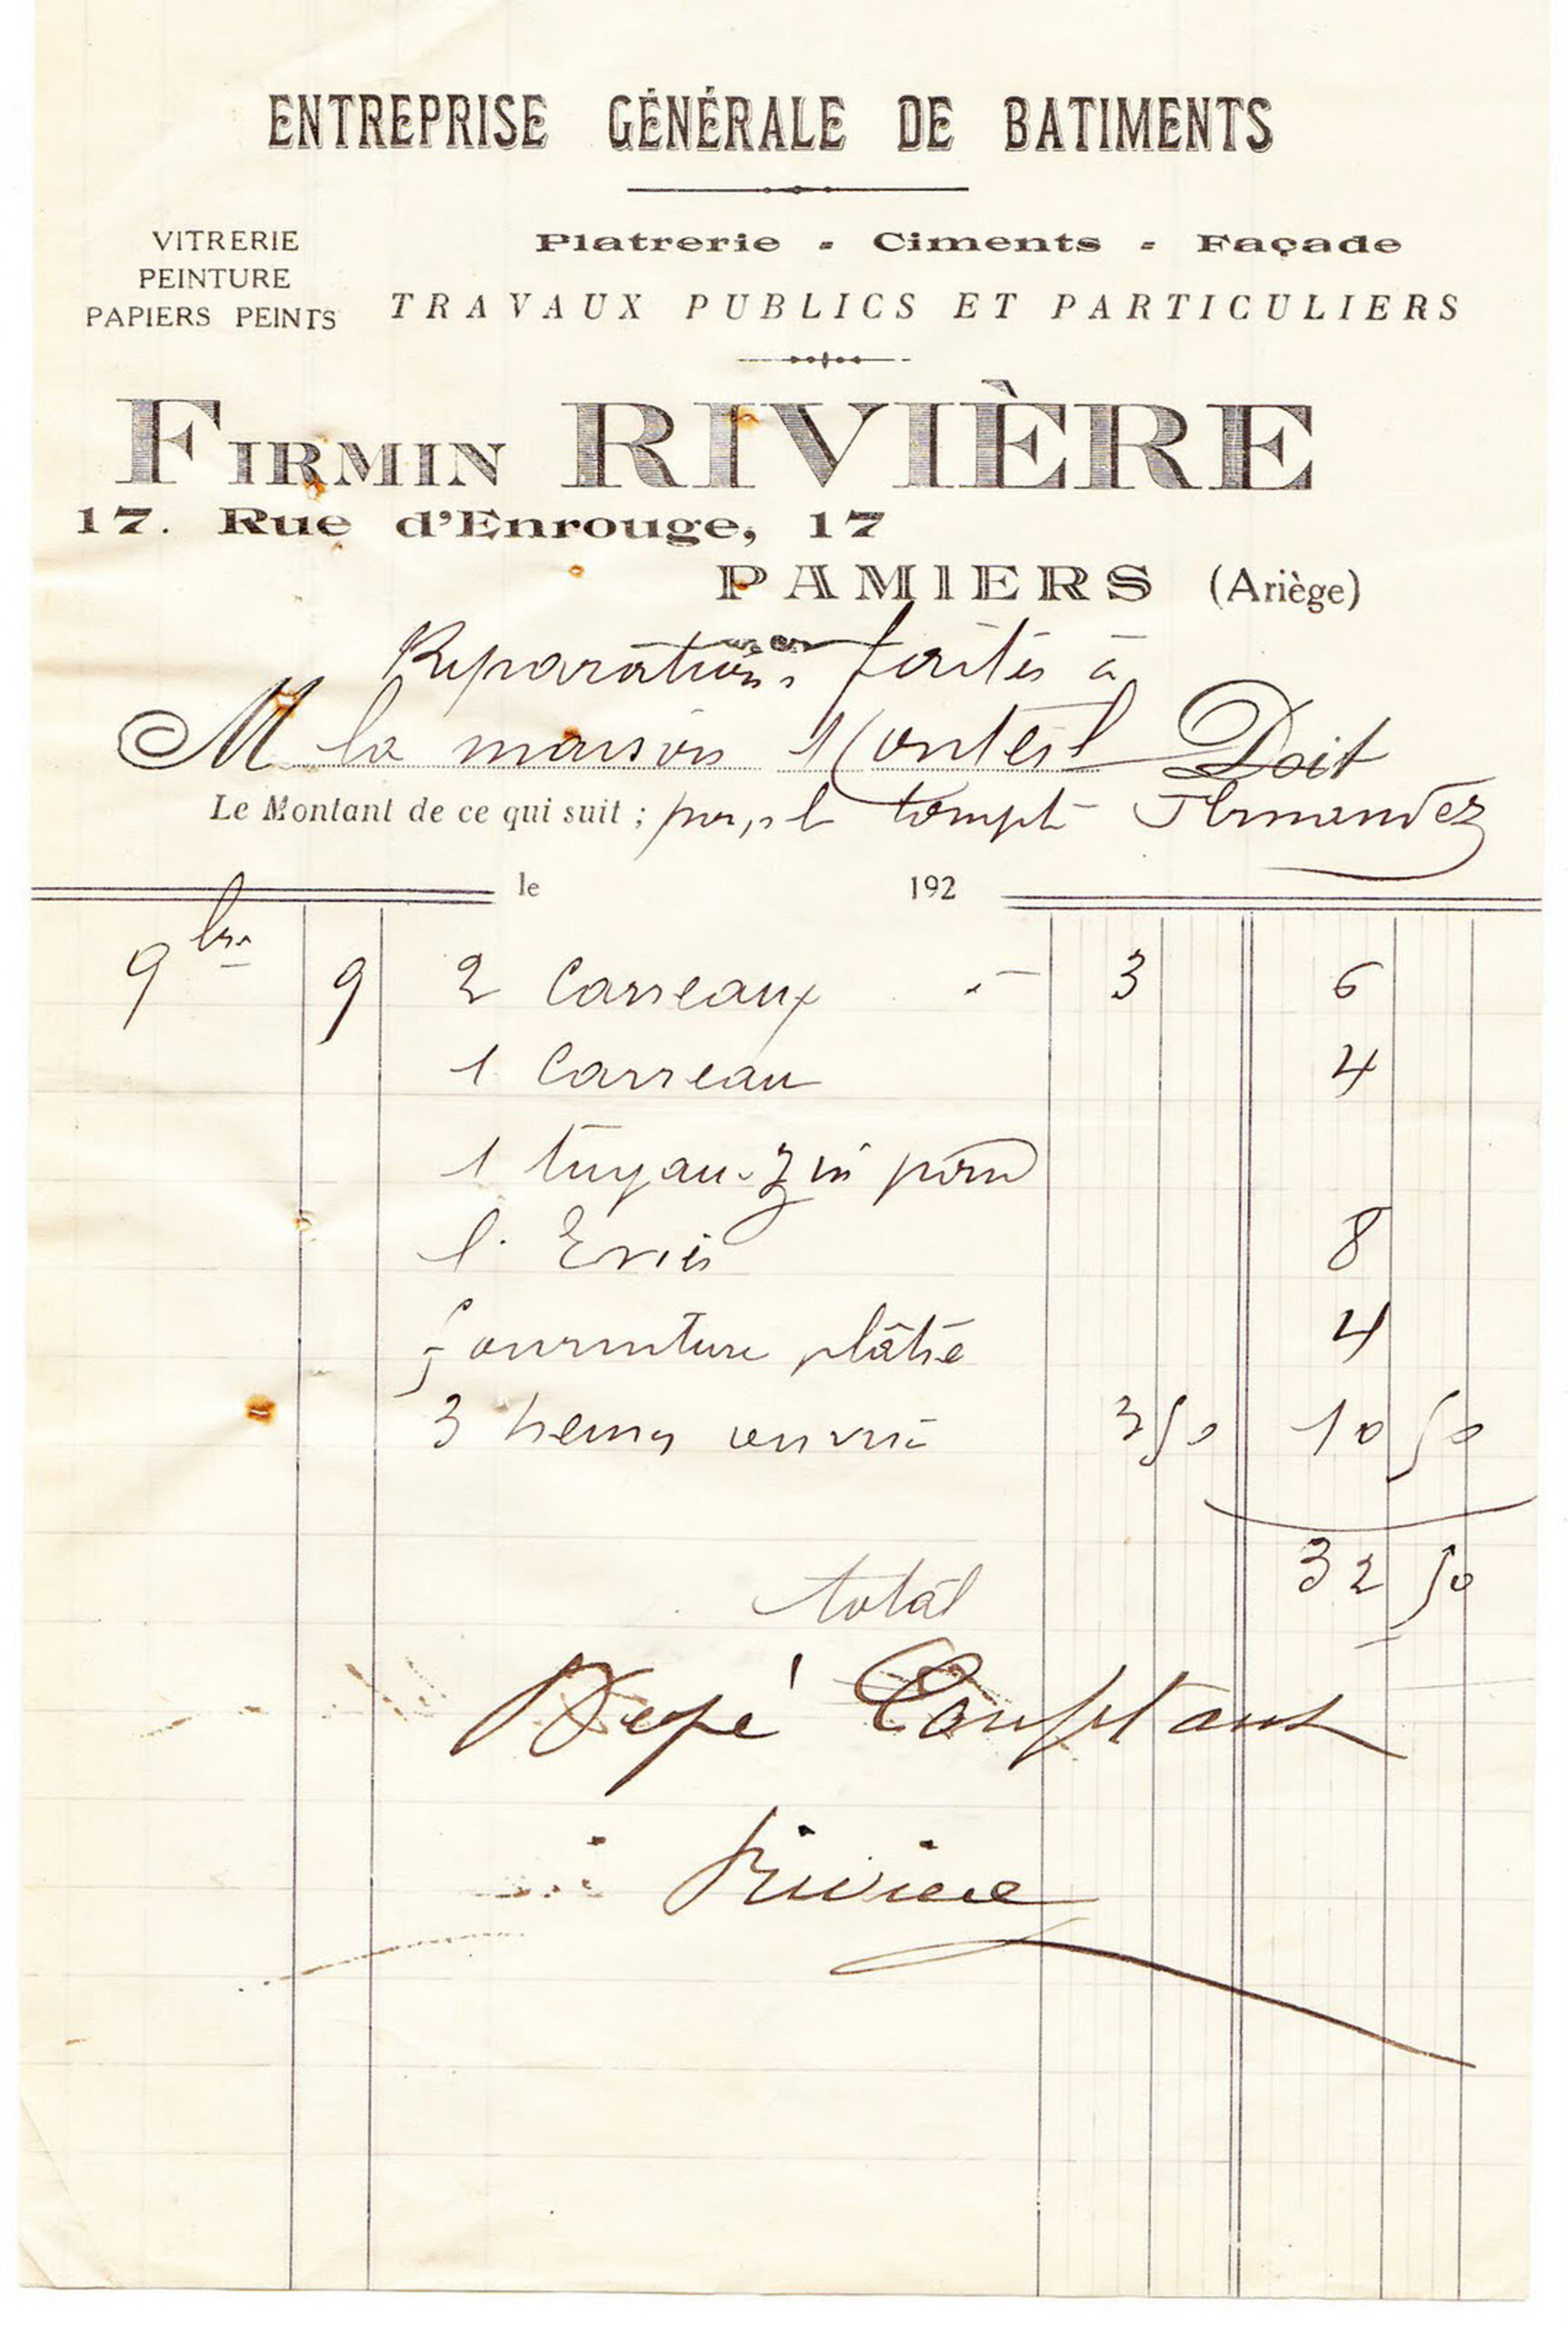 ENTREPRISE GÉNÉRALE DE BATIMENTS
VITRERIE
PEINTURE
PAPIERS PEINTS
Platrerie - Ciments - Façade
TRAVAUX PUBLICS ET PARTICULIERS
FIRMIN RIVIÈRE
17. Rue d'Enrouge, 17
PAMIERS (Ariège)
Reparations faites à
M la maison Monteil Doit
Le Montant de ce qui suit ; pour le compte Fernandez
le 192
9bre 9 2 Carreaux à 3 6
1 Carreau 4
1 tuyau zin pour
l'Evier 8
fourniture plâtre 4
3 heures ouvrier 3 50 10 50
total 32 50
Comptant
Riviere